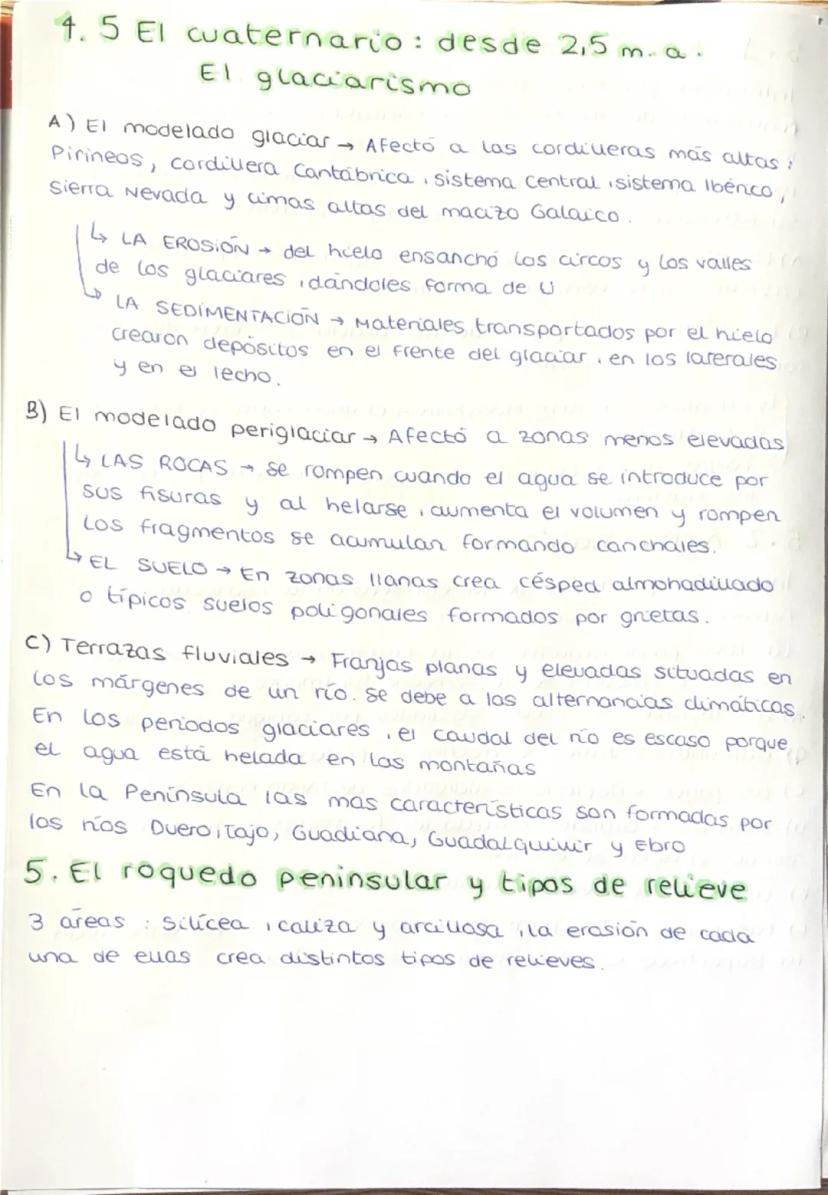 4.5 El cuaternario: desde 2,5 m.a.
El glaciarismo
A) El modelado glaciar → Afectó a las cordilleras más altas:
Pirineos, cordillera Cantábrica, sistema Central, sistema Ibérico,
Sierra Nevada y cimas altas del macizo Galaico.
↳ LA EROSIÓN → del hielo ensanchó los circos y los valles
de los glaciares, dándoles forma de U
↳ LA SEDIMENTACIÓN → Materiales transportados por el hielo
crearon depósitos en el frente del glaciar, en los laterales
y en el lecho.
B) El modelado periglaciar → Afectó a zonas menos elevadas
↳ LAS ROCAS → se rompen cuando el agua se introduce por
sus fisuras y al helarse, aumenta el volumen y rompen
Los fragmentos se acumulan formando canchales.
↳ EL SUELO → En zonas llanas crea césped almohadillado
o típicos suelos poligonales formados por grietas.
C) Terrazas fluviales → Franjas planas y elevadas situadas en
los márgenes de un río. Se debe a las alternancias climáticas.
En los periodos glaciares, el caudal del río es escaso porque
el agua está helada en las montañas
En la Península las más características son formadas por
los ríos Duero, Tajo, Guadiana, Guadalquivir y Ebro
5. El roquedo peninsular y tipos de relieve
3 áreas: Silícea, caliza y arcillosa, la erosión de cada
una de ellas crea distintos tipos de relieves.